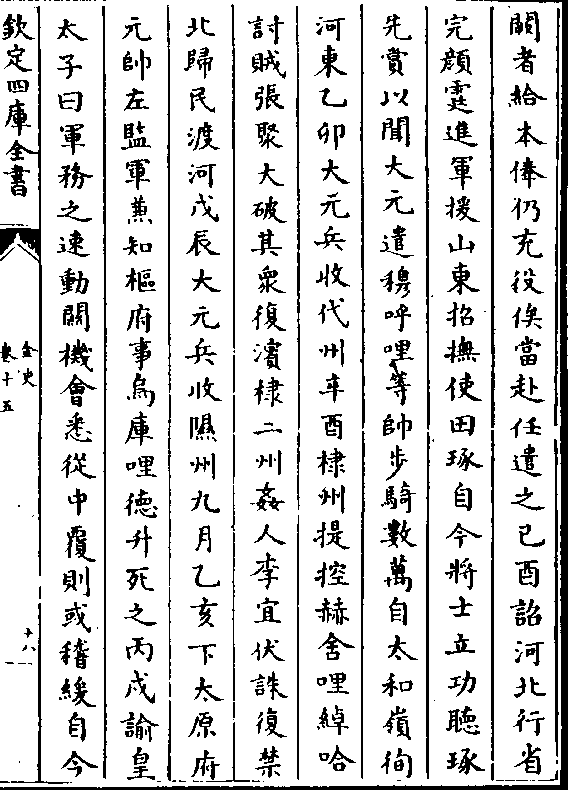 闕者給本俸仍充役俟當赴任遣之已酉詔河北行省
完顔霆進軍援山東招撫使田琢自今將士立功聽琢
先賞以聞大元遣穆呼哩等帥步騎數萬自太和嶺徇
河東乙卯大元兵收代州辛酉棣州提控赫舍哩綽哈
討賊張聚大破其衆復濱棣二州姦人李宜伏誅復禁
北歸民渡河戊辰大元兵收隰州九月乙亥下太原府
元帥左監軍兼知樞府事烏庫哩德升死之丙戌諭皇
太子曰軍務之速動關機會悉從中覆則或稽緩自今
欽定四庫全書
金史
卷十五
十八